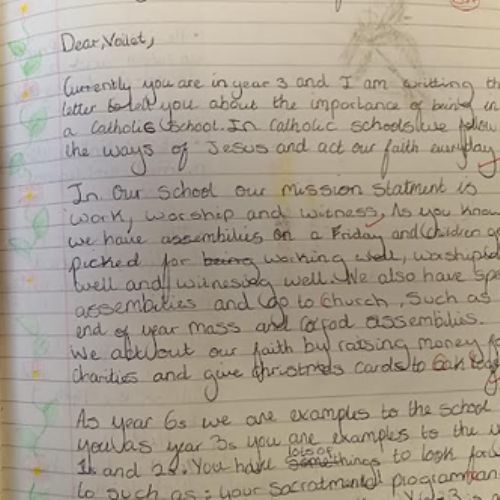 Dear Voilet,
Currently you are in year 3 and I am writting th
letter to tell you about the importance of being in
a Catholic School. In Catholic schools we follow
the ways of Jesus and act our faith everyday
In our school our mission statment is
work, worship and witness. As you know
we have assemblies on a Friday and children
picked for being working well, worshipid
well and witnesing well. We also have spe
assemblies and go to Church, such as
end of year mass and Cafod assemblies.
We act out our faith by raising money fo
charities and give christmas cards to
As year 6s we are examples to the school
you as year 3s you are examples to the
1s and 2s. You have lots of things to look for
to such as: your Sacratmental programm